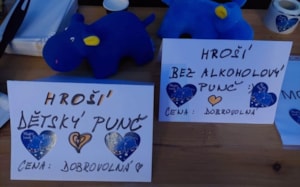 HROŠÍ
DĚTSKÝ PUNČ
CENA: DOBROVOLNÁ
HROŠÍ
BEZ ALKOHOLOVÝ
PUNČ
CENA: DOBROVOLNÁ